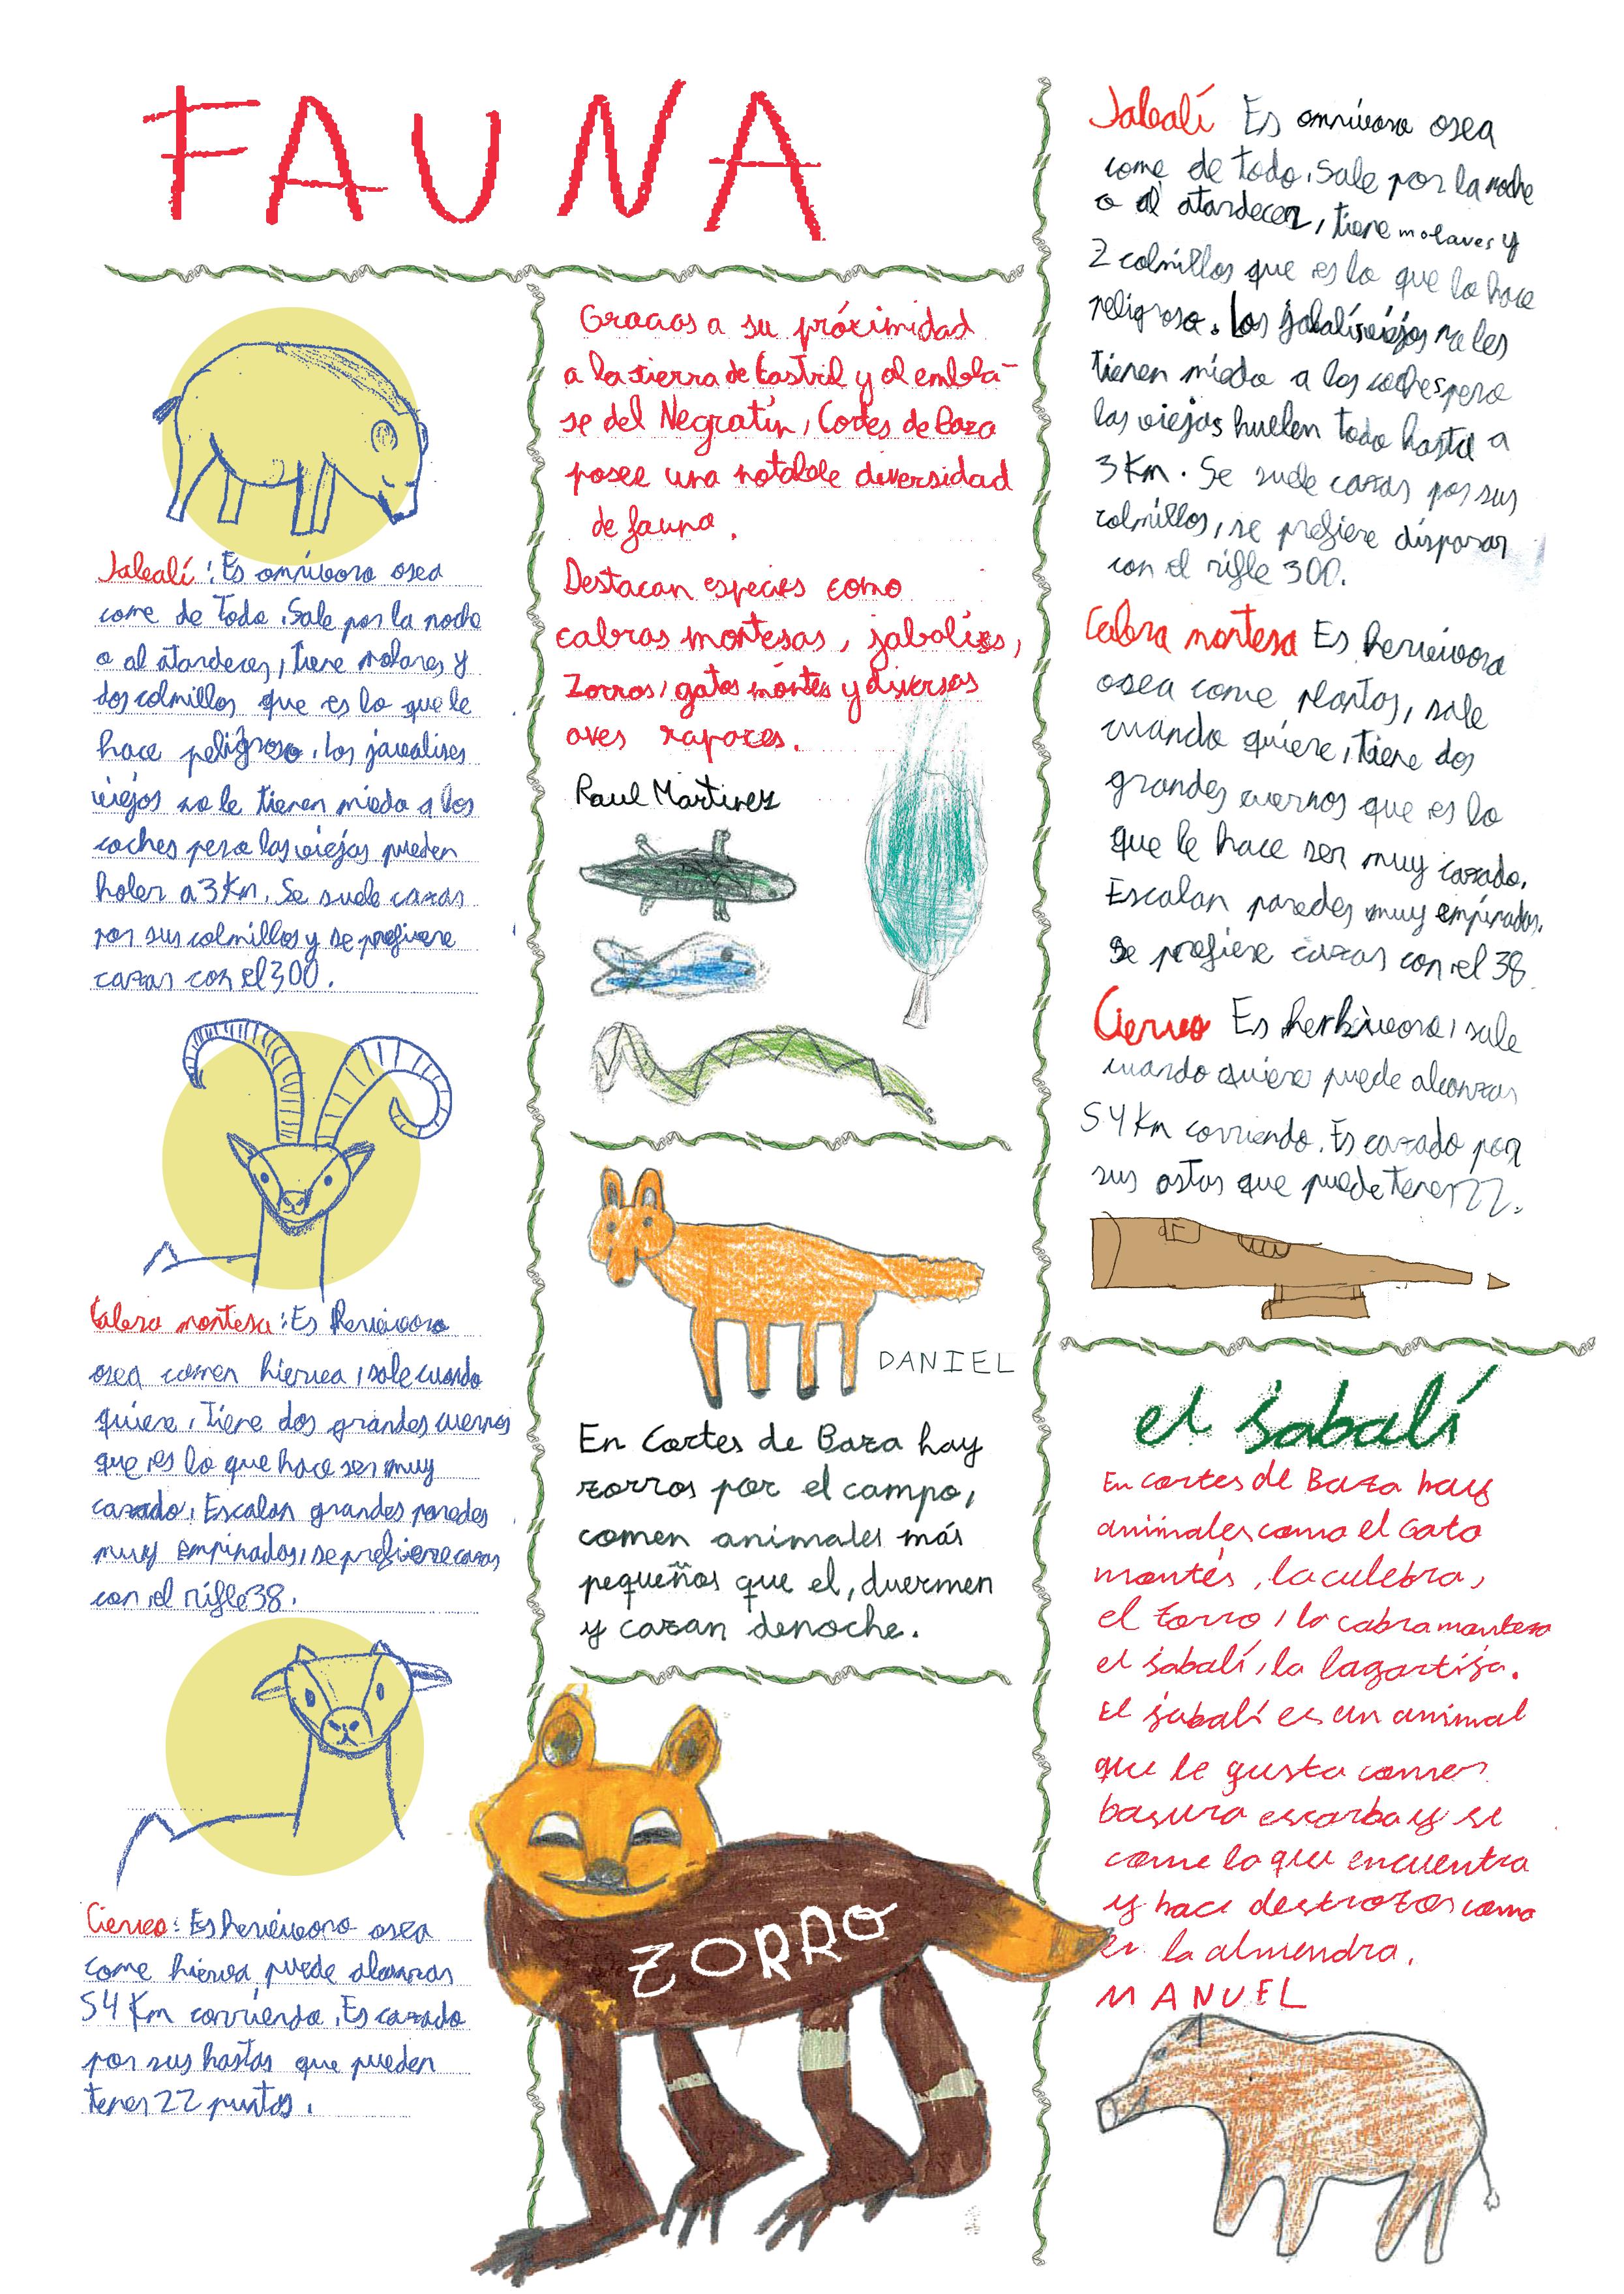 FAUNA
Jabalí: Es omnívoro osea
come de Todo. Sale por la noche
o al atardecer, tiene molares y
dos colmillos que es lo que le
hace peligroso. Los javalises
viejos no le tienen miedo a los
coches pero los viejos pueden
holer a 3 Km. Se suele cazar
por sus colmillos y se prefiere
cazar con el 300.
Cabra montesa: Es Hervívora
osea comen hierva, sale cuando
quiere, Tiene dos grandes cuernos
que es lo que hace ser muy
cazado, Escalan grandes paredes
muy empinados, se prefiere cazar
con el rifle 38.
Ciervo: Es hervívoro osea
come hierva puede alcanzar
54 Km corriendo. Es cazado
por sus hastas que pueden
tener 22 puntos.
Gracias a su próximidad
a la tierra de Castril y al embla-
se del Negratín, Cortes de Baza
posee una notable diversidad
de fauna.
Destacan especies como
cabras montesas, jabalíes,
Zorros, gatos móntes y diversas
aves rapaces.
Raul Martinez
DANIEL
En Cortes de Baza hay
zorros por el campo,
comen animales más
pequeños que el, duermen
y cazan denoche.
ZORRO
Jabalí Es omnívoro osea
come de todo. Sale por la noche
o al atardecer, tiene molares y
2 colmillos que es lo que lo hace
peligroso. Los jabalís viejos no les
tienen miedo a los coches pero
los viejos huelen todo hasta a
3 Km. Se suele cazar por sus
colmillos, se prefiere disparar
con el rifle 300.
Cabra montesa Es hervívora
osea come plantas, sale
cuando quiere, tiene dos
grandes cuernos que es lo
que le hace ser muy cazado.
Escalan paredes muy empinados.
Se prefiere cazar con el 38
Ciervo Es herbívoro, sale
cuando quiere puede alcanzar
54 Km corriendo. Es cazado por
sus astas que puede tener 22.
el Jabalí
En cortes de Baza hay
animales como el Gato
montés, la culebra,
el zorro, la cabra montesa
el Jabalí, la lagartija.
El jabalí es un animal
que le gusta comer
basura escarba y se
come lo que encuentra
y hace destrozos como
en la almendra.
MANUEL